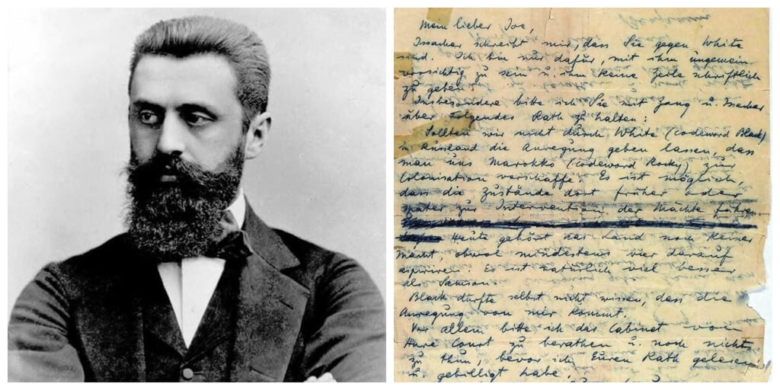 Mein lieber Joe,
Issachar schreibt mir, dass Sie gegen White
sind. Ich bin nur dafür, mit ihm ungemein
vorsichtig zu sein u. ihm keine Zeile schriftlich
zu geben.
Insbesondere bitte ich Sie mit Zang u. Issachar
über Folgendes Rath zu halten:
Sollten wir nicht durch White (Codeword Black)
in England die Anregung geben lassen, dass
man uns Marokko (Codeword Rocky) zur
Colonisation verschaffe. Es ist möglich,
dass die Zustände dort früher oder
später zur Intervention der Mächte führen
Heute gehört das Land noch keiner
Macht obwol mindestens vier darauf
aspiriren. Es ist natürlich viel besser
als
Black dürfte selbst nicht wissen, dass die
Anregung von mir kommt.
Vor allem bitte ich das Cabinet von
Court zu berathen u. noch nichts
zu thun, bevor ich Euren Rath gelesen
u. gebilligt habe.